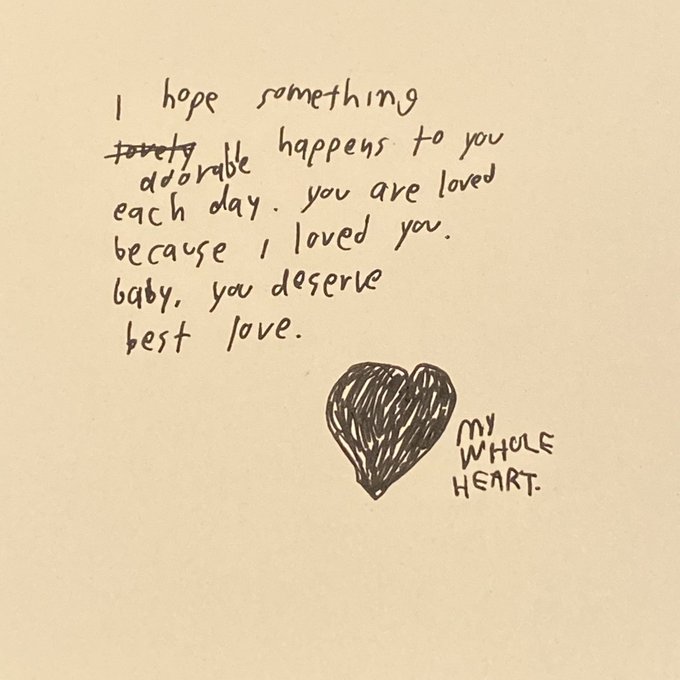 I hope something
lovely happens to you
adorable
each day. you are loved
because I loved you.
baby, you deserve
best love.
MY
WHOLE
HEART.